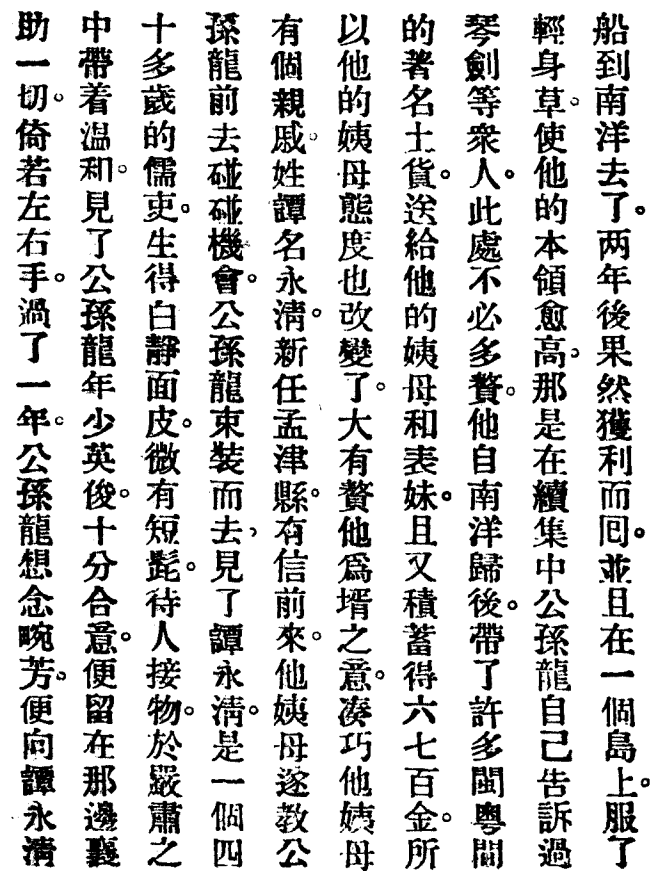 船到南洋去了。两年後果然獲利而囘。並且在一個島上。服了
輕身草。使他的本領愈高。那是在續集中公孫龍自己告訴過
琴劍等衆人。此處不必多贅。他自南洋歸後。帶了許多閩粵間
的著名土貨。送給他的姨母和表妹。且又積蓄得六七百金。所
以他的姨母態度也改變了。大有贅他爲壻之意。凑巧他姨母
有個親戚。姓譚名永淸。新任孟津縣。有信前來。他姨母遂教公
孫龍前去碰碰機會。公孫龍束裝而去。見了譚永淸。是一個四
十多歲的儒吏。生得白靜面皮。微有短髭。待人接物。於嚴肅之
中帶着溫和。見了公孫龍年少英俊。十分合意。便留在那邊襄
助一切。倚若左右手。過了一年。公孫龍想念畹芳。便向譚永淸